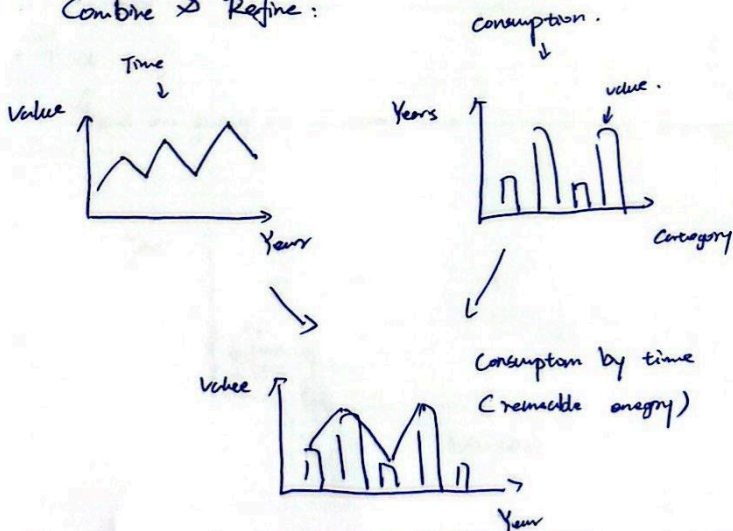 Combine & Refine:
Time
Value
Years
consumption.
value.
Years
Category
Consumptom by time
(renewable enegry)
Value
Year